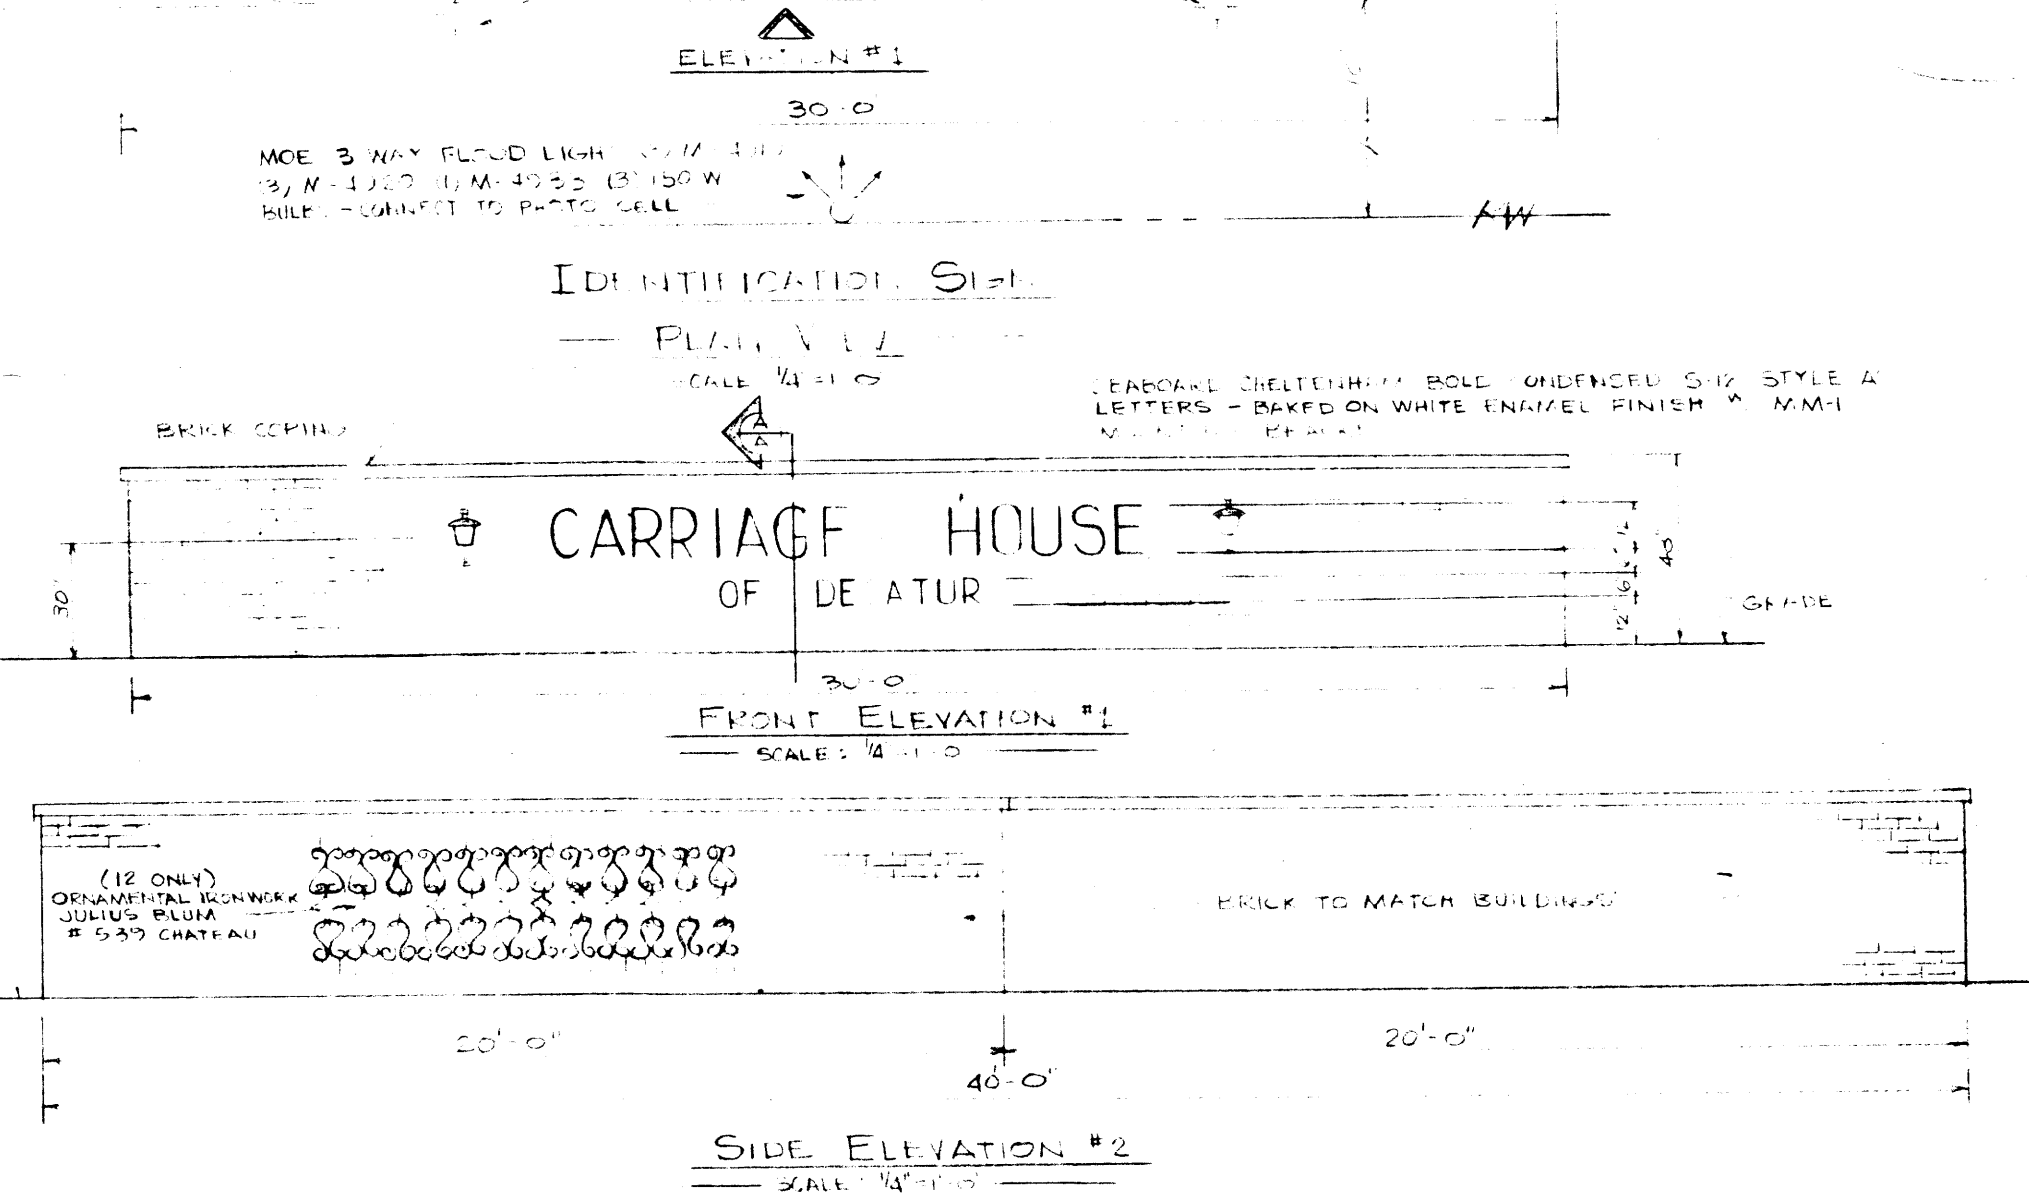 ELEVATION #1
30-0
MOE 3 WAY FLOOD LIGHT
(3) M-4920 (1) M-4933 (3) 150 W
BULBS - CONNECT TO PHOTO CELL
IDENTIFICATION SIGN
PLAN VIEW
SCALE 1/4"=1-0
SEABOARD CHELTENHAM BOLD CONDENSED S-12 STYLE A
LETTERS - BAKED ON WHITE ENAMEL FINISH W. MM-1
BRICK COPING
A
A
CARRIAGE HOUSE
OF DECATUR
30"
12"
6"
12"
48"
GRADE
30-0
FRONT ELEVATION #1
SCALE: 1/4"=1-0
(12 ONLY)
ORNAMENTAL IRONWORK
JULIUS BLUM
# 539 CHATEAU
BRICK TO MATCH BUILDINGS
20'-0"
20'-0"
40'-0"
SIDE ELEVATION #2
SCALE: 1/4"=1'-0"